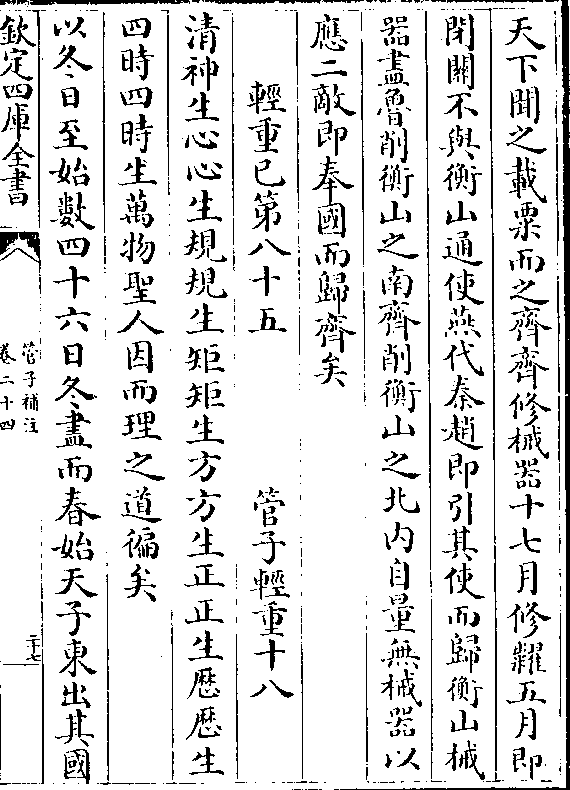 天下聞之載粟而之齊齊修械器十七月修糶五月即
閉關不與衡山通使燕代秦趙即引其使而歸衡山械
器盡魯削衡山之南齊削衡山之北內自量無械器以
應二敵即奉國而歸齊矣
輕重已第八十五　管子輕重十八
清神生心心生規規生矩矩生方方生正正生歴歴生
四時四時生萬物聖人因而理之道徧矣
以冬日至始數四十六日冬盡而春始天子東出其國
欽定四庫全書
管子補注
卷二十四
二十七